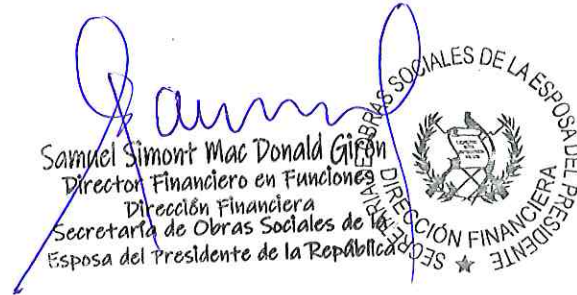 Samuel Simont Mac Donald Girón
Director Financiero en Funciones
Dirección Financiera
Secretaría de Obras Sociales de la
Esposa del Presidente de la República
SECRETARIA DE OBRAS SOCIALES DE LA ESPOSA DEL PRESIDENTE
DIRECCIÓN FINANCIERA